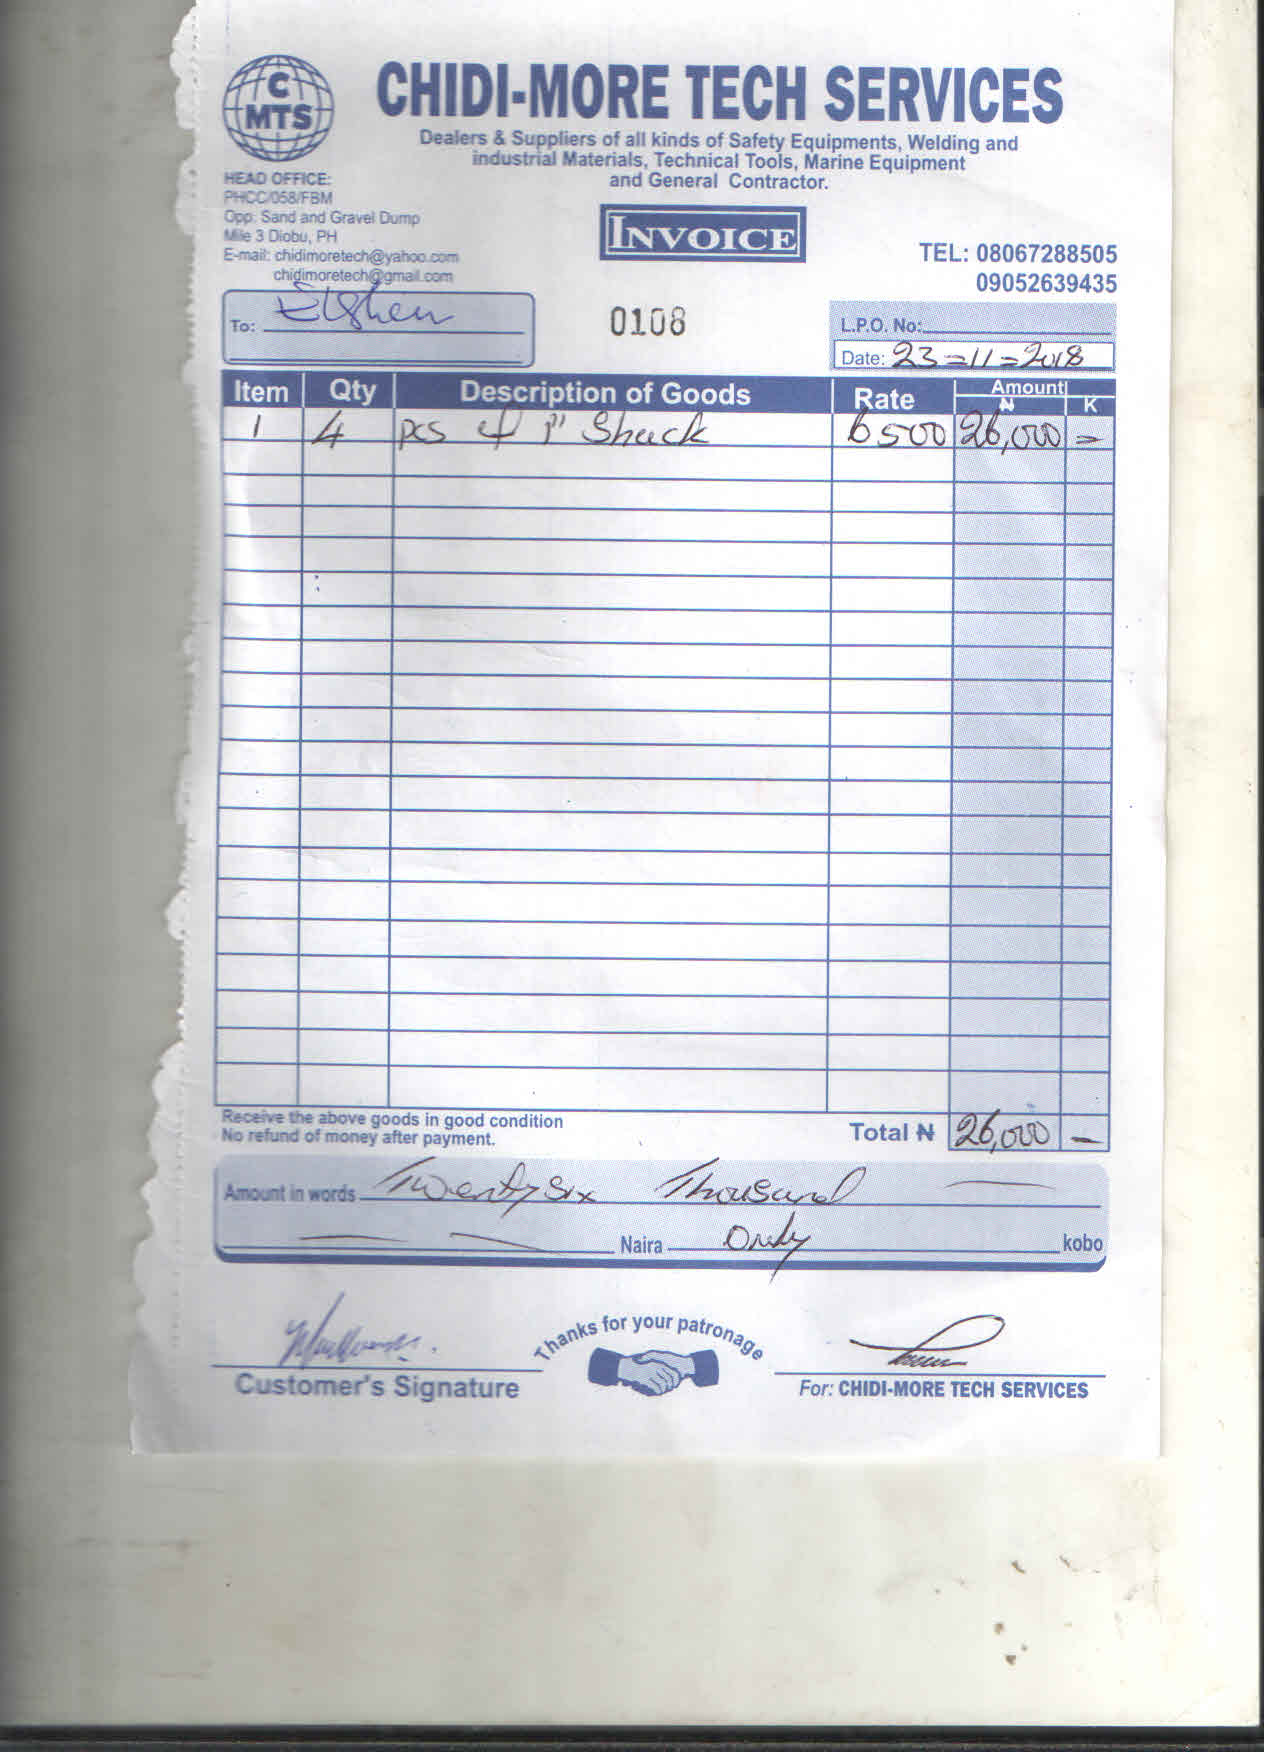 C
MTS
CHIDI-MORE TECH SERVICES
Dealers & Suppliers of all kinds of Safety Equipments, Welding and
industrial Materials, Technical Tools, Marine Equipment
and General Contractor.
HEAD OFFICE:
PHCC/058/FBM
Opp. Sand and Gravel Dump
Mile 3 Diobu, PH
E-mail: chidimoretech@yahoo.com
chidimoretech@gmail.com
INVOICE
TEL: 08067288505
09052639435
To:
0108
L.P.O. No:
Date: 23=11=2018
Item Qty Description of Goods Rate Amount ₦ K
1 4 pcs of 1" Shack 6500 26,000 =
Receive the above goods in good condition
No refund of money after payment.
Total ₦ 26,000 —
Amount in words Twenty six Thousand
Naira Only kobo
Thanks for your patronage
Customer's Signature
For: CHIDI-MORE TECH SERVICES